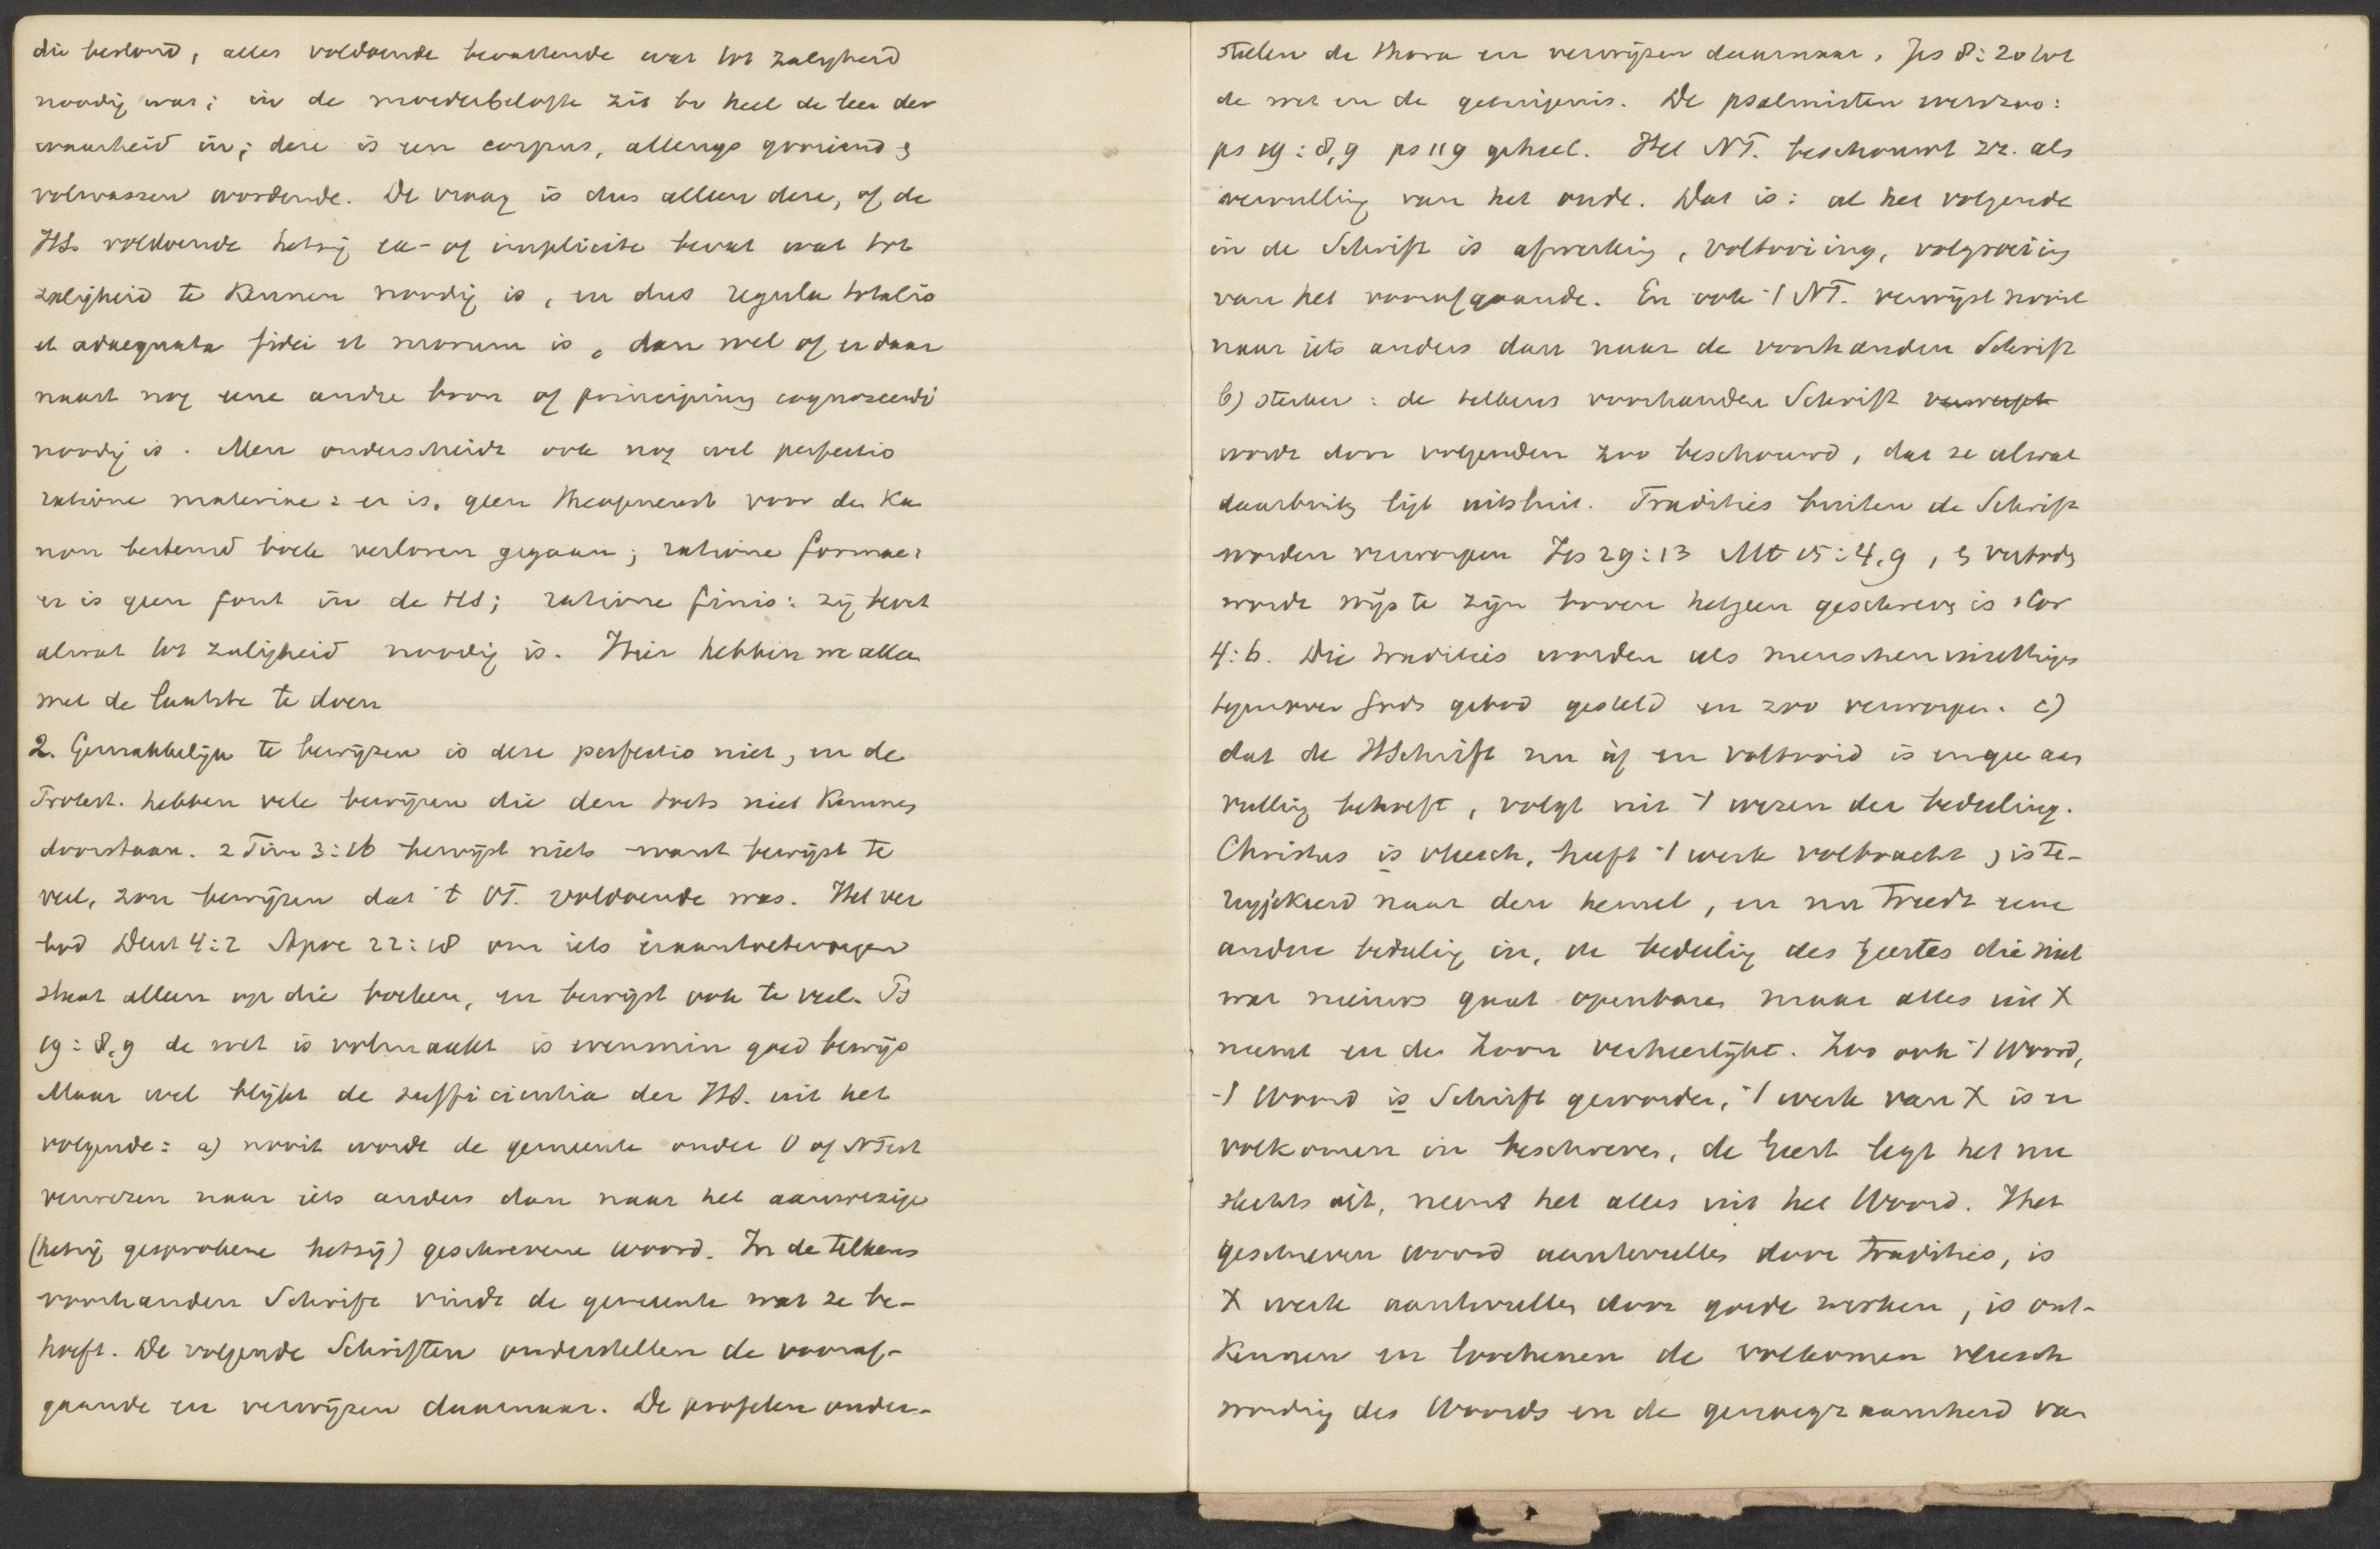 die bestond, alles voldoende bevattende wat tot zaligheid
noodig was; in de moederbelofte zit bv heel de leer der
waarheid in; deze is een corpus, allengs groeiend &
volwassen wordende. De vraag is dus alleen deze, of de
HS. voldoende hetzij ex- of implicite bevat wat tot
zaligheid te kennen noodig is, en dus regula totalis
et adaequata fidei et morum is, dan wel of er daar
naast nog eene andre bron of principium cognoscendi
noodig is. Men onderscheidt ook nog wel perfectio
ratione materiae: er is geen theopneust voor den Ka
non bestemd boek verloren gegaan; ratione formae:
er is geen fout in de HS; ratione finis: zij bevat
alwat tot zaligheid noodig is. Hier hebben we alleen
met de laatste te doen
2. Gemakkelijk te bewijzen is deze perfectio niet, en de
Protest. hebben vele bewijzen die den toets niet kunnen
doorstaan. 2 Tim 3:16 bewijst niets want bewijst te
veel, zou bewijzen dat 't OT. voldoende was. Het ver
bod Deut 4:2 Apoc 22:18 om iets eraan toetevoegen
slaat alleen op die boeken, en bewijst ook te veel. Ps
19:8,9 de wet is volmaakt is evenmin goed bewijs
Maar wel blijkt de sufficientia der HS. uit het
volgende: a) nooit wordt de gemeente onder O of NTest
verwezen naar iets anders dan naar het aanwezige
(hetzij gesprokene hetzij) geschrevene woord. In de telkens
voorhanden Schrift vindt de gemeente wat ze be-
hoeft. De volgende Schriften onderstellen de vooraf-
gaande en verwijzen daarnaar. De profeten onder-
stellen de thora en verwijzen daarnaar, Jes 8:20 tot
de wet en de getuigenis. De psalmisten evenzoo:
ps 19:8,9 ps 119 geheel. Het NT. beschouwt zx. als
vervulling van het oude. Dat is: al het volgende
in de Schrift is afwerking, voltooiing, volgroeiing
van het voorafgaande. En ook 't NT. verwijst nooit
naar iets anders dan naar de voorhanden Schrift
b) sterker: de telkens voorhanden Schrift verwerpt
wordt door volgenden zoo beschouwd, dat ze alwat
daarbuiten ligt uitsluit. Tradities buiten de Schrift
worden verworpen Jes 29:13 Mt 15:4,9, & verboden
wordt wijs te zijn boven hetgeen geschreven is 1 Cor
4:6. Die tradities worden als menscheninzettingen
tegenover Gods gebod gesteld en zoo verworpen. c)
dat de HSchrift nu àf en voltooid is en geen aan
vulling behoeft, volgt uit 't wezen der bedeeling.
Christus is vleesch, heeft 't werk volbracht, is te-
ruggekeerd naar den hemel, en nu treedt eene
andere bedeeling in, de bedeeling des Geestes die niet
wat nieuws gaat openbaren maar alles uit X
neemt en den Zoon verheerlijkt. Zoo ook 't Woord,
't Woord is Schrift geworden, 't werk van X is er
volkomen in beschreven, de Geest legt het nu
slechts uit, neemt het alles uit het Woord. Het
geschreven woord aantevullen door tradities, is
X werk aantevullen door goede werken, is ont-
kennen en loochenen de volkomen vleesch
wording des Woords en de genoegzaamheid van